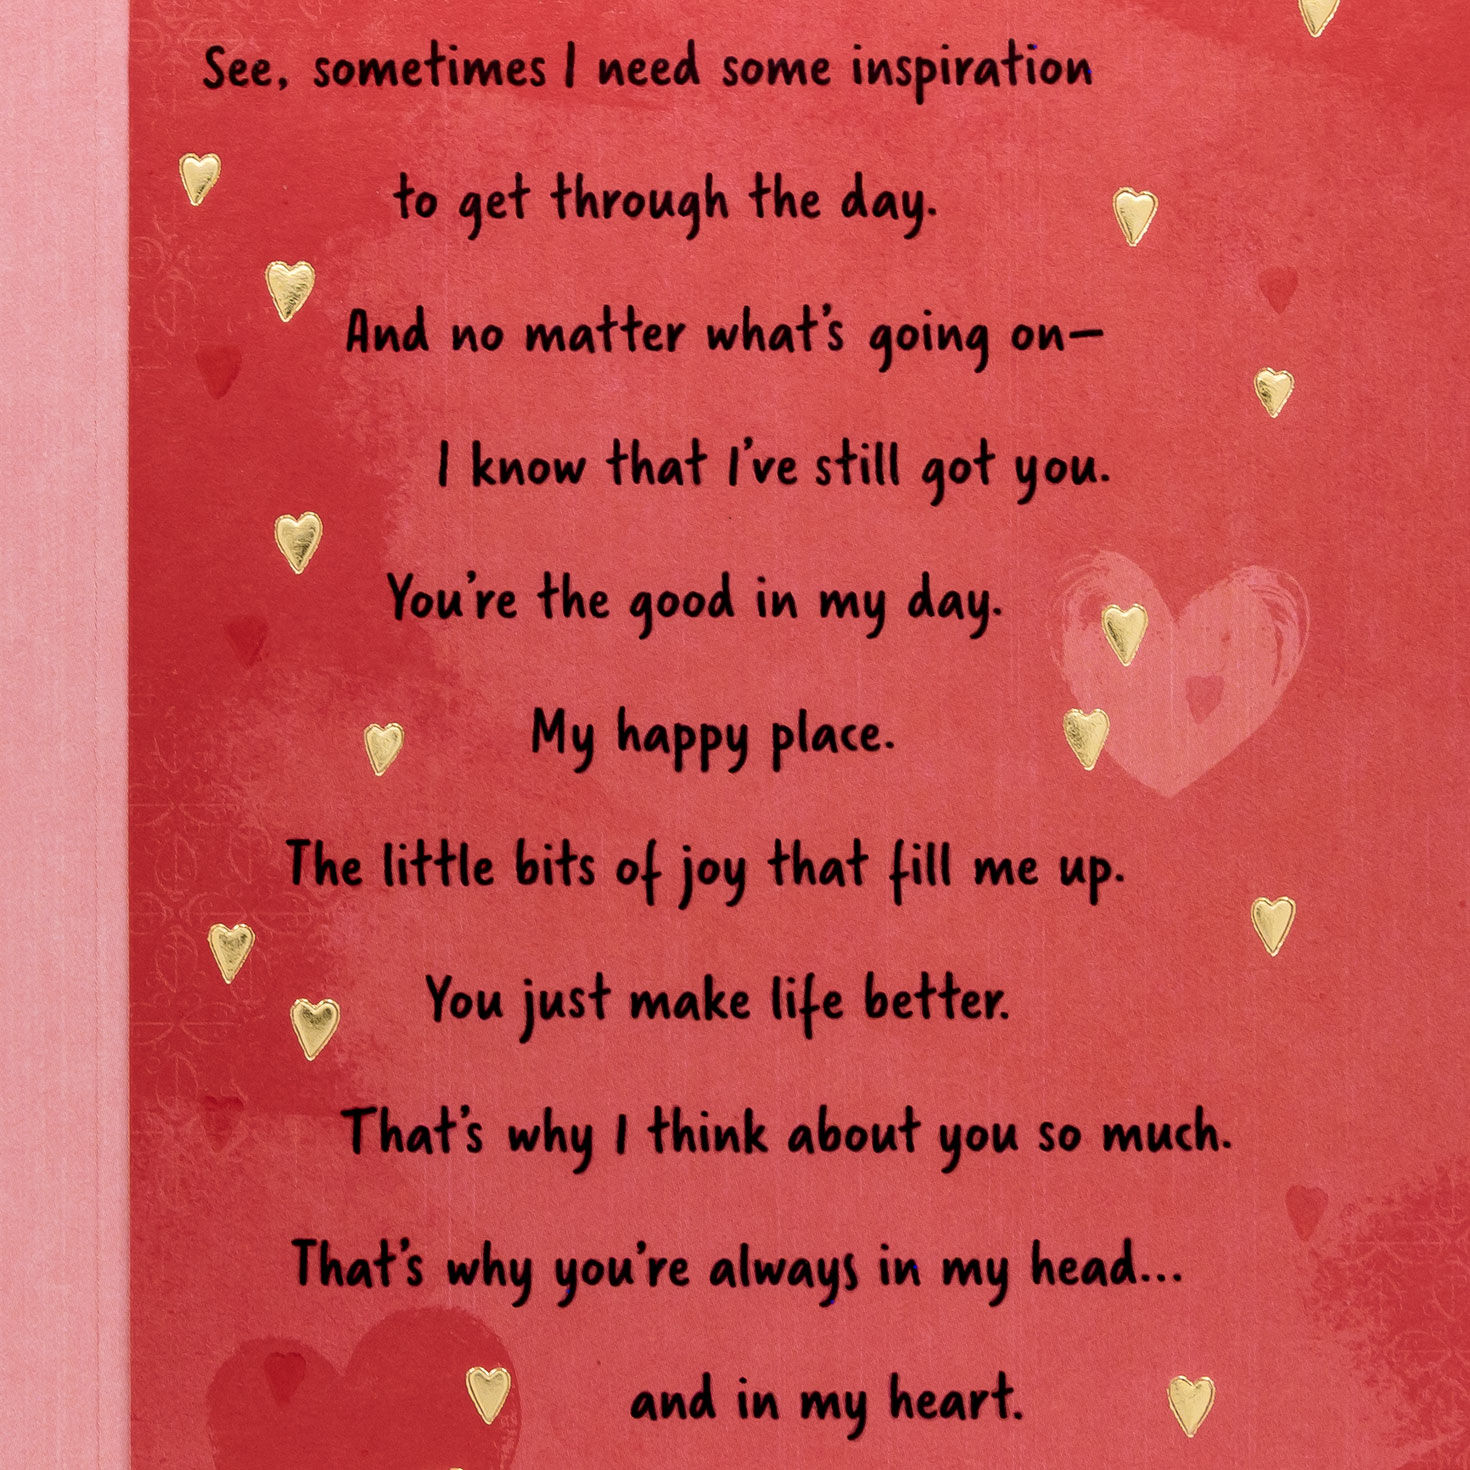 See, sometimes I need some inspiration
to get through the day.
And no matter what's going on—
I know that I've still got you.
You're the good in my day.
My happy place.
The little bits of joy that fill me up.
You just make life better.
That's why I think about you so much.
That's why you're always in my head...
and in my heart.